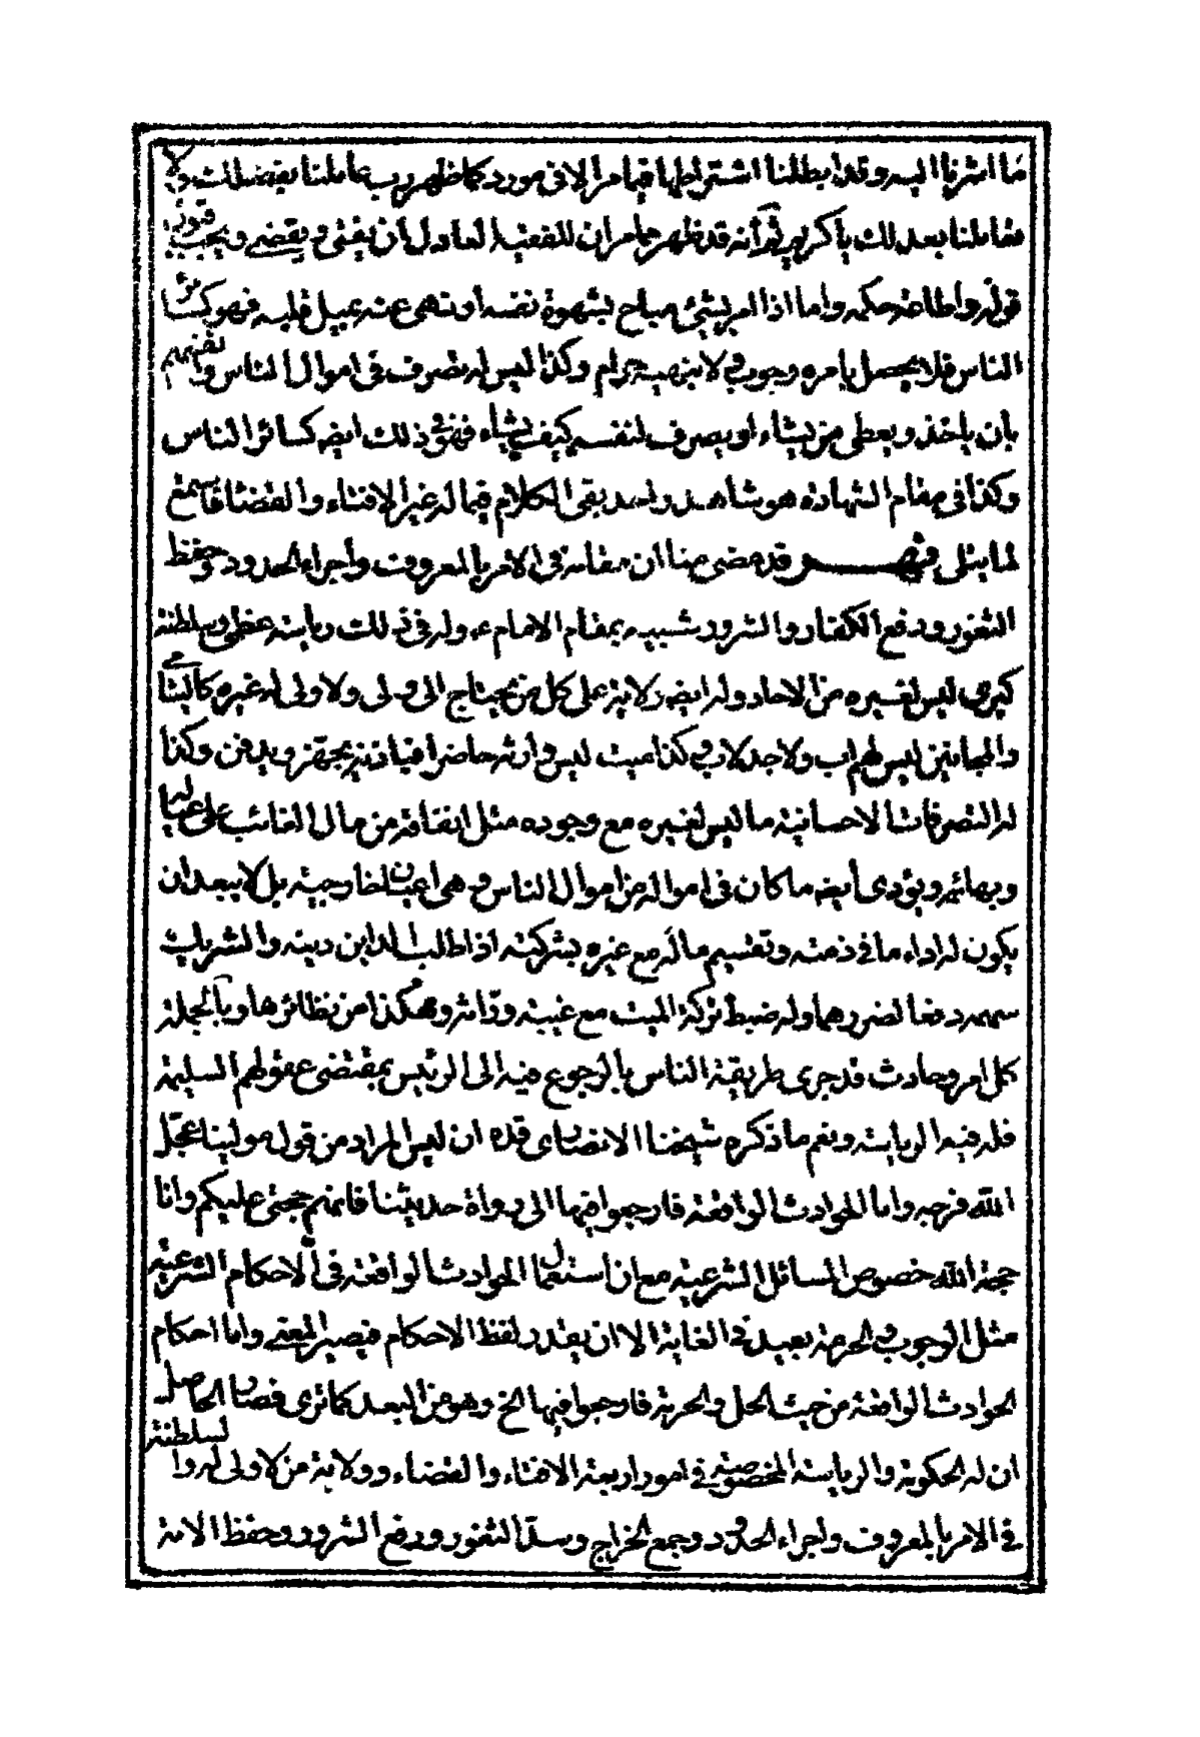 ما اشرنا اليه وقد ابطلنا اشتراطها فيما مر الا فى مورد كما ظهر عاملنا بفضلك ولا
مقاملنا بعد لك يا كريم ثم أنه قد ظهر مما مر ان للفقيه العادل أن يفتى ويقضى ويجب قبول
قوله واطاعة حكمه واما اذا امر بشئ مباح بشهوة نفسه أو نهى عنه بميل قلبه فهو كسائر
الناس فلا يحصل بامره وجوب ولا بنهيه حرام وكذا ليس له تصرف فى اموال الناس وانفسهم
بان ياخذ ويعطى من يشاء او يصرف لنفسه كيف يشاء فهو فى ذلك ايضه كسائر الناس
وكذا فى مقام الشهادة هو شاهد واحد بقى الكلام فيما له غير الافتاء والقضا فاسمع
لما يتلى فنقول قد مضى منا ان مقامه فى الامر بالمعروف وأجراء الحدود وحفظ
الثغور ودفع الكفار والشرور شبيه بمقام الامام ع وله فى ذلك رياسة عظمى وسلطنة
كبرى ليس لغيره من الاحاد وله ايضه ولاية على كل من يحتاج الى ولى ولا ولى له غيره كاليتامى
والمجانين ليس لهم اب ولا جد لاب وكذا ميت ليس وارثه حاضرا فباذنه يجهز ويدفن وكذا
له التصرفات الاحسانية ما ليس لغيره مع وجوده مثل انفاقه من مال الغائب على عياله
وبهائمه ويؤدى أيضه ما كان فى امواله من اموال الناس وهى اعيان خارجية بل لا يبعد ان
يكون له اداء ما فى ذمته وتقسيم ماله مع غيره بشركته اذا طلب الداين دينه والشريك
سهمه دفعا لضررهما وله ضبط تركة الميت مع غيبة ورّاثه وهكذا من نظائرها وبالجملة
كل امر وحادث قد جرى طريقة الناس بالرجوع فيه الى الرئيس بمقتضى عقولهم السليمة
فله فيه الرياسة ونعم ما ذكره شيخنا الانصارى قده ان ليس المراد من قول مولينا عجّل
الله فرجه واما الحوادث الواقعة فارجعوا فيها الى رواة حديثنا فانهم حجتى عليكم وانا
حجة الله خصوص المسائل الشرعية مع ان استعمال الحوادث الواقعة فى الاحكام الشرعية
مثل الوجوب والحرمة بعيد فى الغاية الا ان يقدر لفظ الاحكام فيصير المعنى واما احكام
الحوادث الواقعة من حيث الحل والحرمة فارجعوا فيها الخ وهو من البعد كما ترى فصار الحاصل
ان له الحكومة والرياسة المخصوصة فى امور اربعة الافتاء والقضاء وولاية من لا ولى له والسلطنة
فى الامر بالمعروف واجراء الحدود وجمع الخراج وسدّ الثغور ودفع الشرور وحفظ الامة